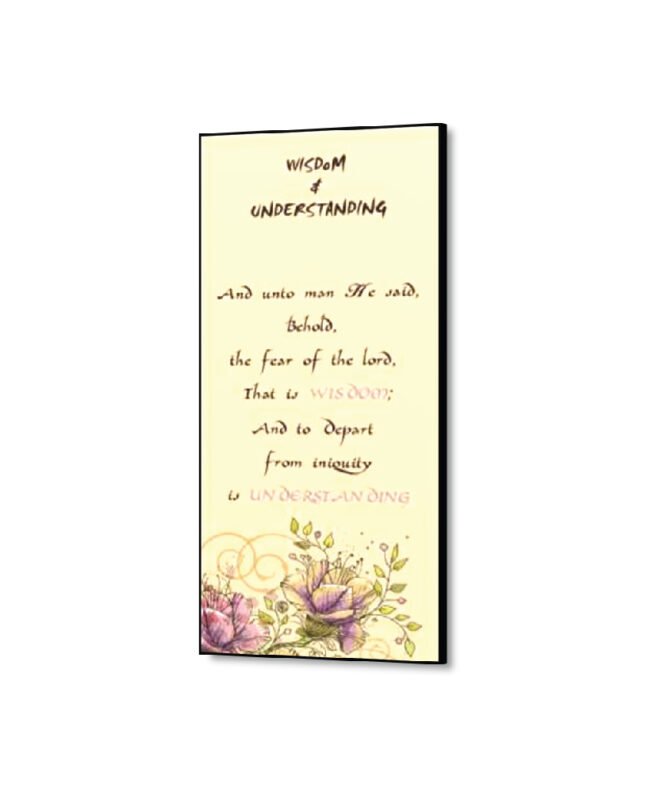 WISDoM
&
UNDERSTANDING
And unto man He said,
Behold,
the fear of the lord,
That is WISDOM;
And to Depart
from iniquity
is UNDERSTANDING